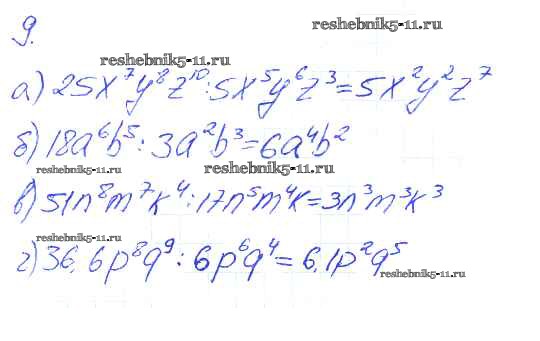 9.
reshebnik5-11.ru
reshebnik5-11.ru
а) 25x⁷y⁸z¹⁰:5x⁵y⁶z³=5x²y²z⁷
б) 18a⁶b⁵:3a²b³=6a⁴b²
reshebnik5-11.ru
reshebnik5-11.ru
в) 51n⁸m⁷k⁴:17n⁵m⁴k=3n³m³k³
reshebnik5-11.ru
г) 36,6p⁸q⁹:6p⁶q⁴=6,1p²q⁵
reshebnik5-11.ru